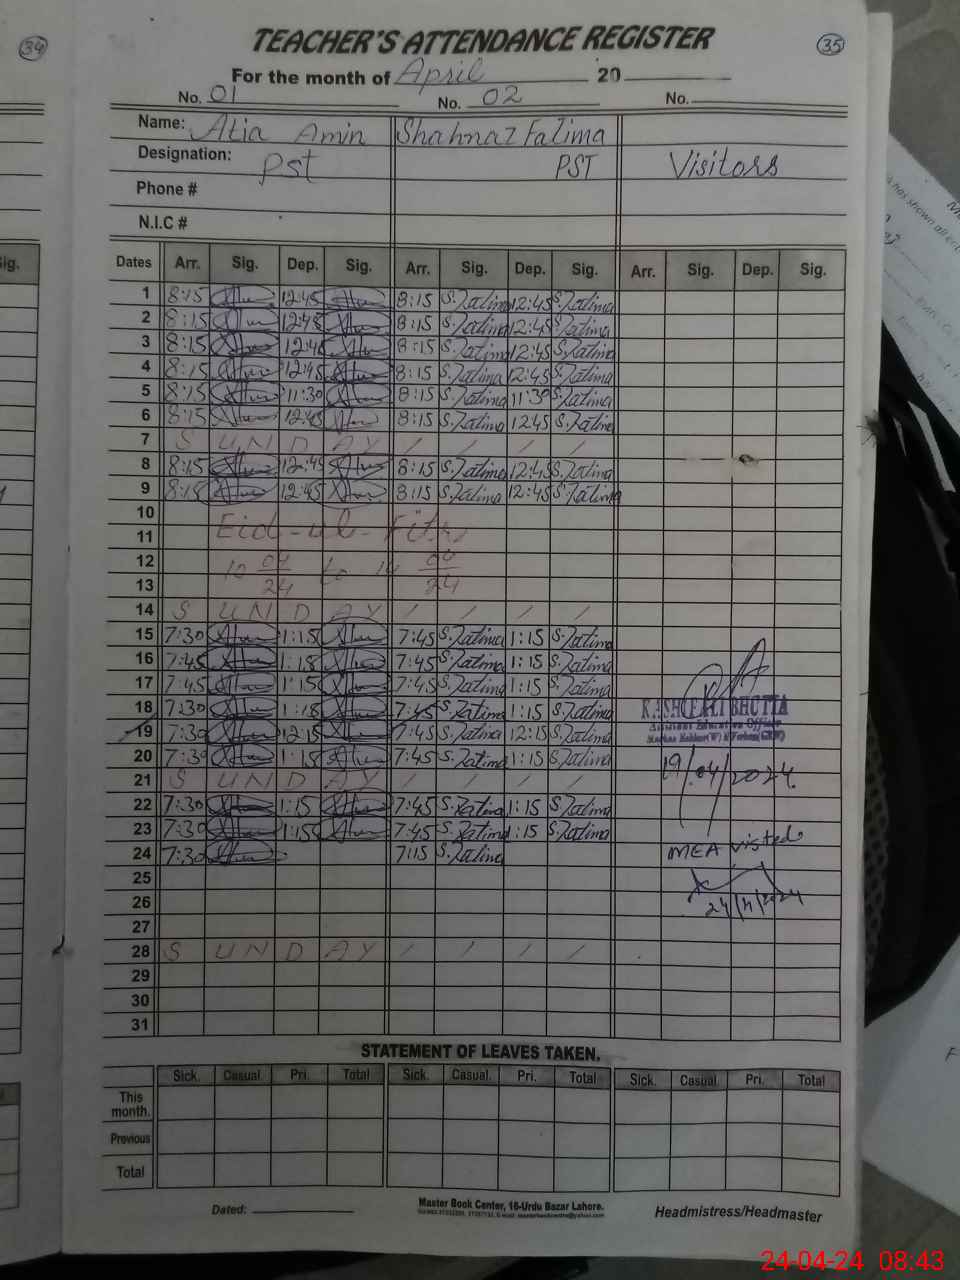 34
TEACHER'S ATTENDANCE REGISTER
35
For the month of April 20
No. 01 No. 02 No.
Name: Atia Amin Shahnaz Fatima
Designation: Pst PST Visitors
Phone #
N.I.C #
Sig.
Dates Arr. Sig. Dep. Sig. Arr. Sig. Dep. Sig. Arr. Sig. Dep. Sig.
1 8:15 12:45 8:15 S.Fatima 12:45 S.Fatima
2 8:15 12:45 8:15 S.Fatima 12:45 S.Fatima
3 8:15 12:45 8:15 S.Fatima 12:45 S.Fatima
4 8:15 12:45 8:15 S.Fatima 12:45 S.Fatima
5 8:15 11:30 8:15 S.Fatima 11:30 S.Fatima
6 8:15 12:45 8:15 S.Fatima 12:45 S.Fatima
7 S U N D A Y / / / /
8 8:15 12:45 8:15 S.Fatima 12:45 S.Fatima
9 8:15 12:45 8:15 S.Fatima 12:45 S.Fatima
10
11 Eid-ul-Fitr
12 10 04/24 to 14 04/24
13
14 S U N D A Y / / / /
15 7:30 1:15 7:45 S.Fatima 1:15 S.Fatima
16 7:45 1:15 7:45 S.Fatima 1:15 S.Fatima
17 7:45 1:15 7:45 S.Fatima 1:15 S.Fatima
18 7:30 1:15 7:45 S.Fatima 1:15 S.Fatima KASHIF ALI BHUTTA
19 7:30 12:15 7:45 S.Fatima 12:15 S.Fatima Assistant Education Officer
20 7:30 1:15 7:45 S.Fatima 1:15 S.Fatima 19/04/2024.
21 S U N D A Y / / / /
22 7:30 1:15 7:45 S.Fatima 1:15 S.Fatima
23 7:30 1:15 7:45 S.Fatima 1:15 S.Fatima
24 7:30 7:15 S.Fatima MEA visted
25
26 24/4/2024
27
28 S U N D A Y / / / /
29
30
31
STATEMENT OF LEAVES TAKEN.
Sick. Casual Pri. Total Sick. Casual. Pri. Total Sick. Casual Pri. Total
This month.
Previous
Total
Dated: Master Book Center, 16-Urdu Bazar Lahore. Headmistress/Headmaster
24-04-24 08:43